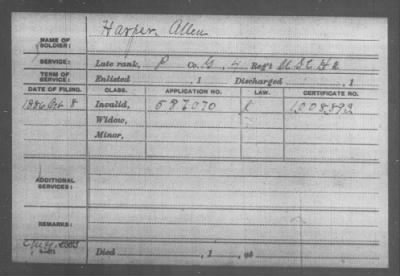 NAME OF SOLDIER: Harper, Allen
SERVICE: Late rank, P Co. G, Reg't U.S.C.H.A.
TERM OF SERVICE: Enlisted , 1 Discharged , 1
DATE OF FILING. CLASS. APPLICATION NO. LAW. CERTIFICATE NO.
1886 Oct 8 Invalid, 587070 1008892
Widow,
Minor,
ADDITIONAL SERVICES:
REMARKS:
Died , 1 , at